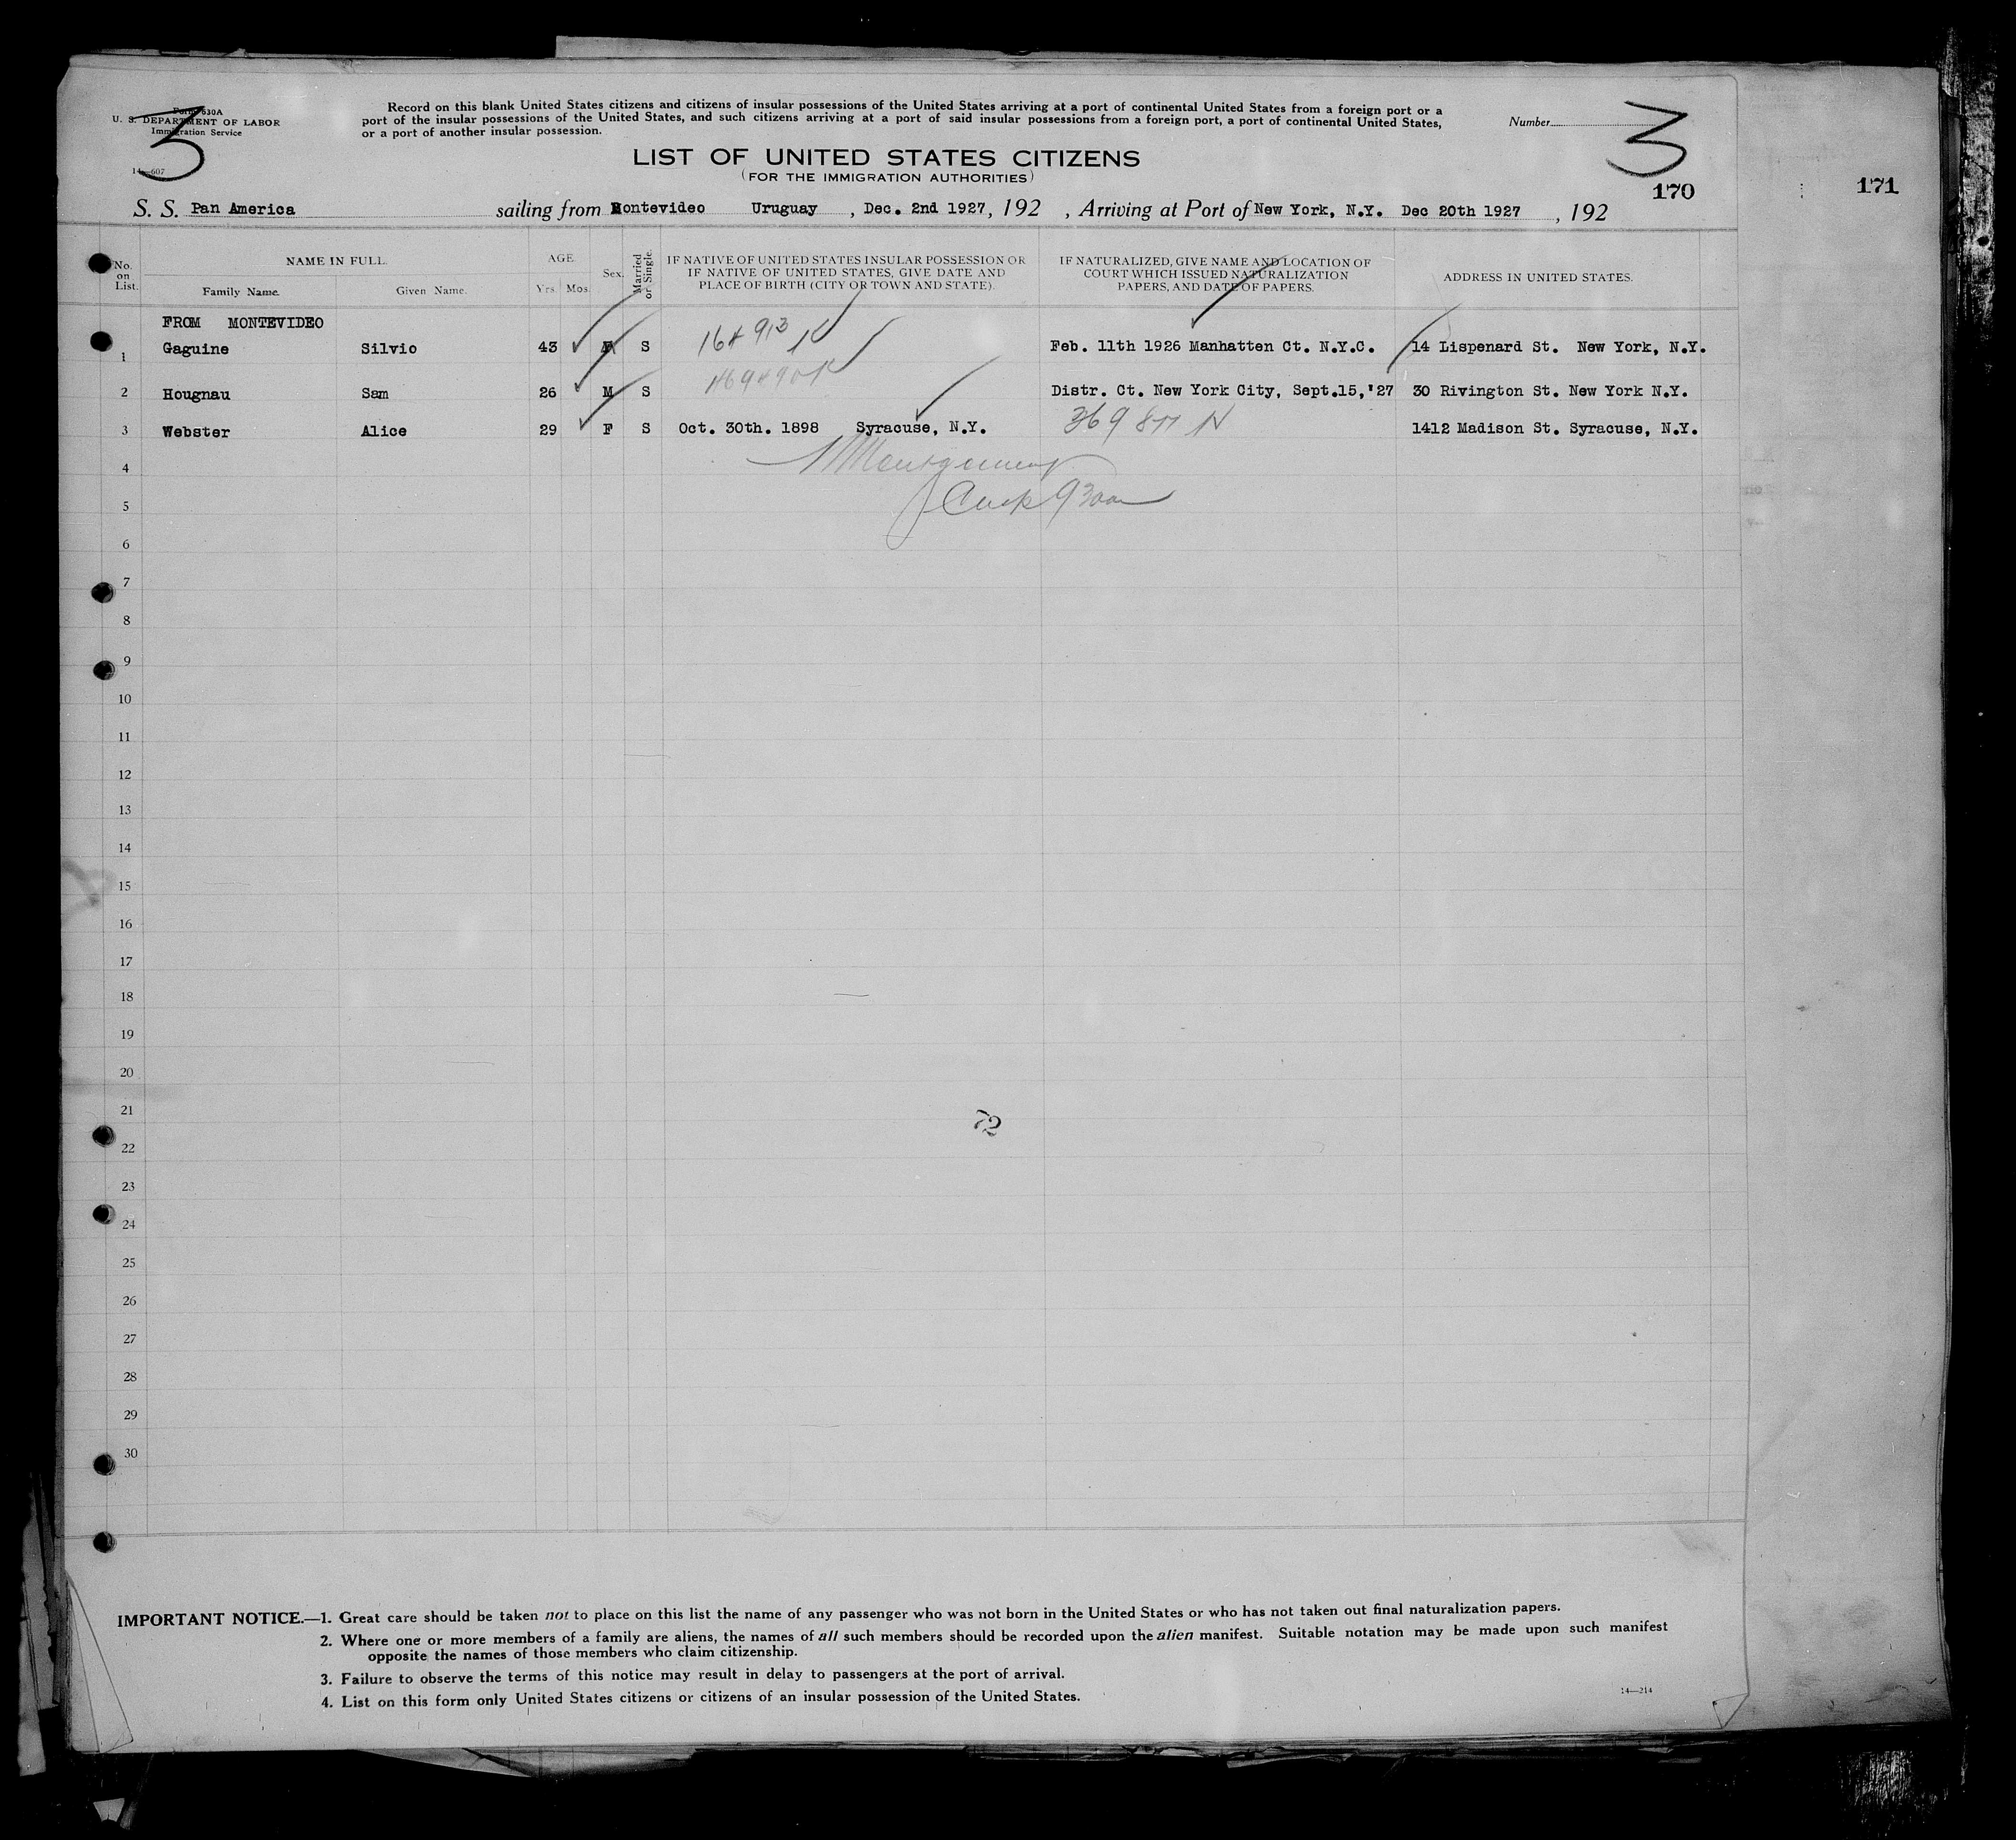 Form 630A
U. S. DEPARTMENT OF LABOR
Immigration Service
14—607
3
Record on this blank United States citizens and citizens of insular possessions of the United States arriving at a port of continental United States from a foreign port or a
port of the insular possessions of the United States, and such citizens arriving at a port of said insular possessions from a foreign port, a port of continental United States,
or a port of another insular possession.
Number
3
LIST OF UNITED STATES CITIZENS
(FOR THE IMMIGRATION AUTHORITIES)
170
171
S. S. Pan America sailing from Montevideo Uruguay , Dec. 2nd 1927, 192 , Arriving at Port of New York, N.Y. Dec 20th 1927 , 192
No. on List.
NAME IN FULL.
Family Name. Given Name.
AGE.
Yrs. Mos.
Sex.
Married or Single.
IF NATIVE OF UNITED STATES INSULAR POSSESSION OR
IF NATIVE OF UNITED STATES, GIVE DATE AND
PLACE OF BIRTH (CITY OR TOWN AND STATE).
IF NATURALIZED, GIVE NAME AND LOCATION OF
COURT WHICH ISSUED NATURALIZATION
PAPERS, AND DATE OF PAPERS.
ADDRESS IN UNITED STATES.
FROM MONTEVIDEO
1 Gaguine Silvio 43 S Feb. 11th 1926 Manhatten Ct. N.Y.C. 14 Lispenard St. New York, N.Y.
2 Hougnau Sam 26 M S Distr. Ct. New York City, Sept.15,'27 30 Rivington St. New York N.Y.
3 Webster Alice 29 F S Oct. 30th. 1898 Syracuse, N.Y. 1412 Madison St. Syracuse, N.Y.
4
5
6
7
8
9
10
11
12
13
14
15
16
17
18
19
20
21
72
22
23
24
25
26
27
28
29
30
IMPORTANT NOTICE.—1. Great care should be taken not to place on this list the name of any passenger who was not born in the United States or who has not taken out final naturalization papers.
2. Where one or more members of a family are aliens, the names of all such members should be recorded upon the alien manifest. Suitable notation may be made upon such manifest
opposite the names of those members who claim citizenship.
3. Failure to observe the terms of this notice may result in delay to passengers at the port of arrival.
4. List on this form only United States citizens or citizens of an insular possession of the United States.
14—214